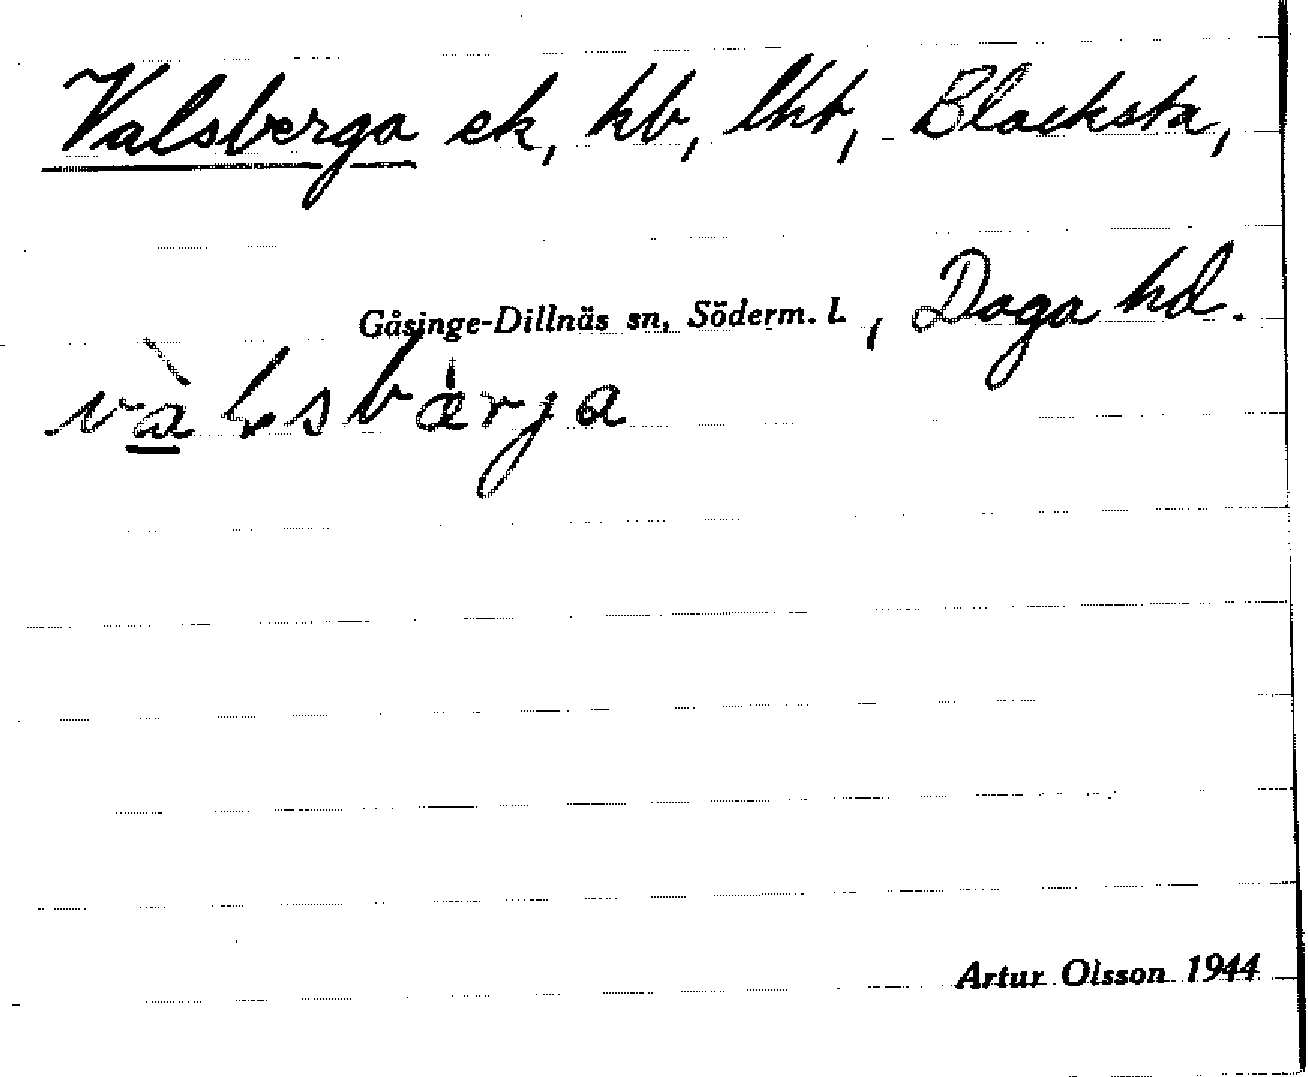 Valsberga ek, hb, lht, Blacksta,
Gåsinge-Dillnäs sn, Söderm. l., Daga hd.
Artur Olsson 1944